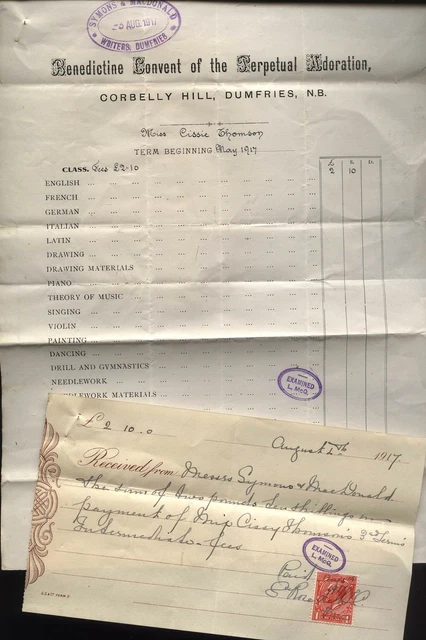 SYMONS & MACDONALD
-3 AUG. 1917
WRITERS, DUMFRIES
Benedictine Convent of the Perpetual Adoration,
CORBELLY HILL, DUMFRIES, N.B.
Miss Cissie Thomson
TERM BEGINNING May 1917
CLASS. Fees £2-10
£ S. D.
2 10
ENGLISH
FRENCH
GERMAN
ITALIAN
LATIN
DRAWING
DRAWING MATERIALS
PIANO
THEORY OF MUSIC
SINGING
VIOLIN
PAINTING
DANCING
DRILL AND GYMNASTICS
NEEDLEWORK
DLEWORK MATERIALS
EXAMINED
L. McQ.
£2 10.0
August 4th 1917
Received from Messrs Symons & MacDonald
the sum of two pounds ten shillings in
payment of Miss Cissy Thomson's 3rd Term
Intermediate fees
EXAMINED
L. McQ.
Paid